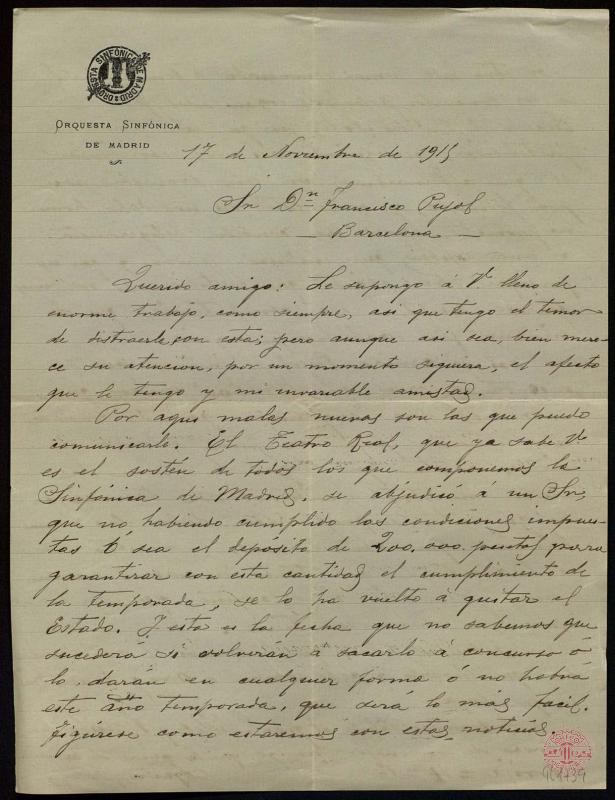 ORQUESTA SINFÓNICA DE MADRID
ORQUESTA SINFÓNICA
DE MADRID
17 de Noviembre de 1915
Sr Dn Francisco Pujol
— Barcelona —
Querido amigo: Le supongo á Vd lleno de
enorme trabajo, como siempre, asi que tengo el temor
de distraerle con esta; pero aunque asi sea, bien mere-
ce su atencion, por un momento siquiera, el afecto
que le tengo y mi invariable amistad.
Por aqui malas nuevas son las que puedo
comunicarle. El Teatro Real, que ya sabe Vd
es el sostén de todos los que componemos la
Sinfónica de Madrid, se abjudicó á un Sr,
que no habiendo cumplido las condiciones impues-
tas ó sea el depósito de 200.000 pesetas para
garantizar con esta cantidad el cumplimiento de
la temporada, se lo ha vuelto á quitar el
Estado. Y esta es la fecha que no sabemos que
sucederá si volverán á sacarlo á concurso ó
lo darán en cualquier forma ó no habrá
este año temporada, que será lo más facil.
Figúrese como estaremos con estas noticias.